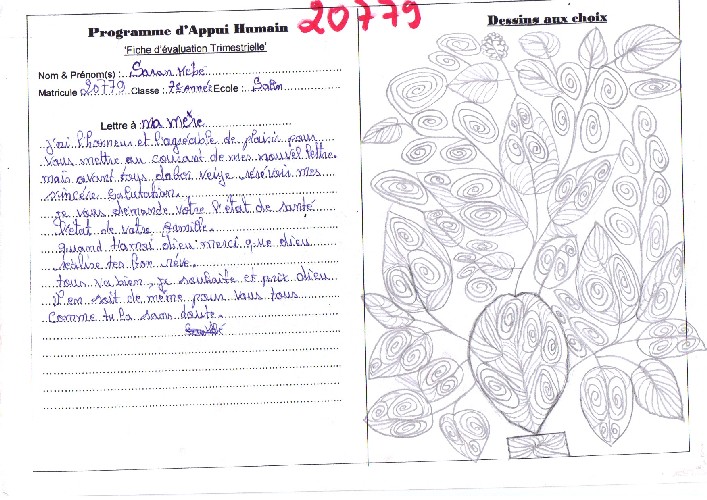 20779
Programme d'Appui Humain
'Fiche d'évaluation Trimestrielle'
Nom & Prénom(s) : Saran
Matricule 20779 Classe : 7è année Ecole :
Lettre à ma mère
j'ai l'honneur et l'agréable de plaisir pour
vous mettre au courant de mes nouvel lettre.
mais avant tous dabor mes
sincère Salutation.
je vous demande votre l'état de santé
l'état de votre famille.
quand dieu merci que dieu
réalise tes bon rêve.
tous va bien, je souhaite et prit dieu
Il en soit de même pour vous tous
Comme tu la sans doute.
Dessins aux choix